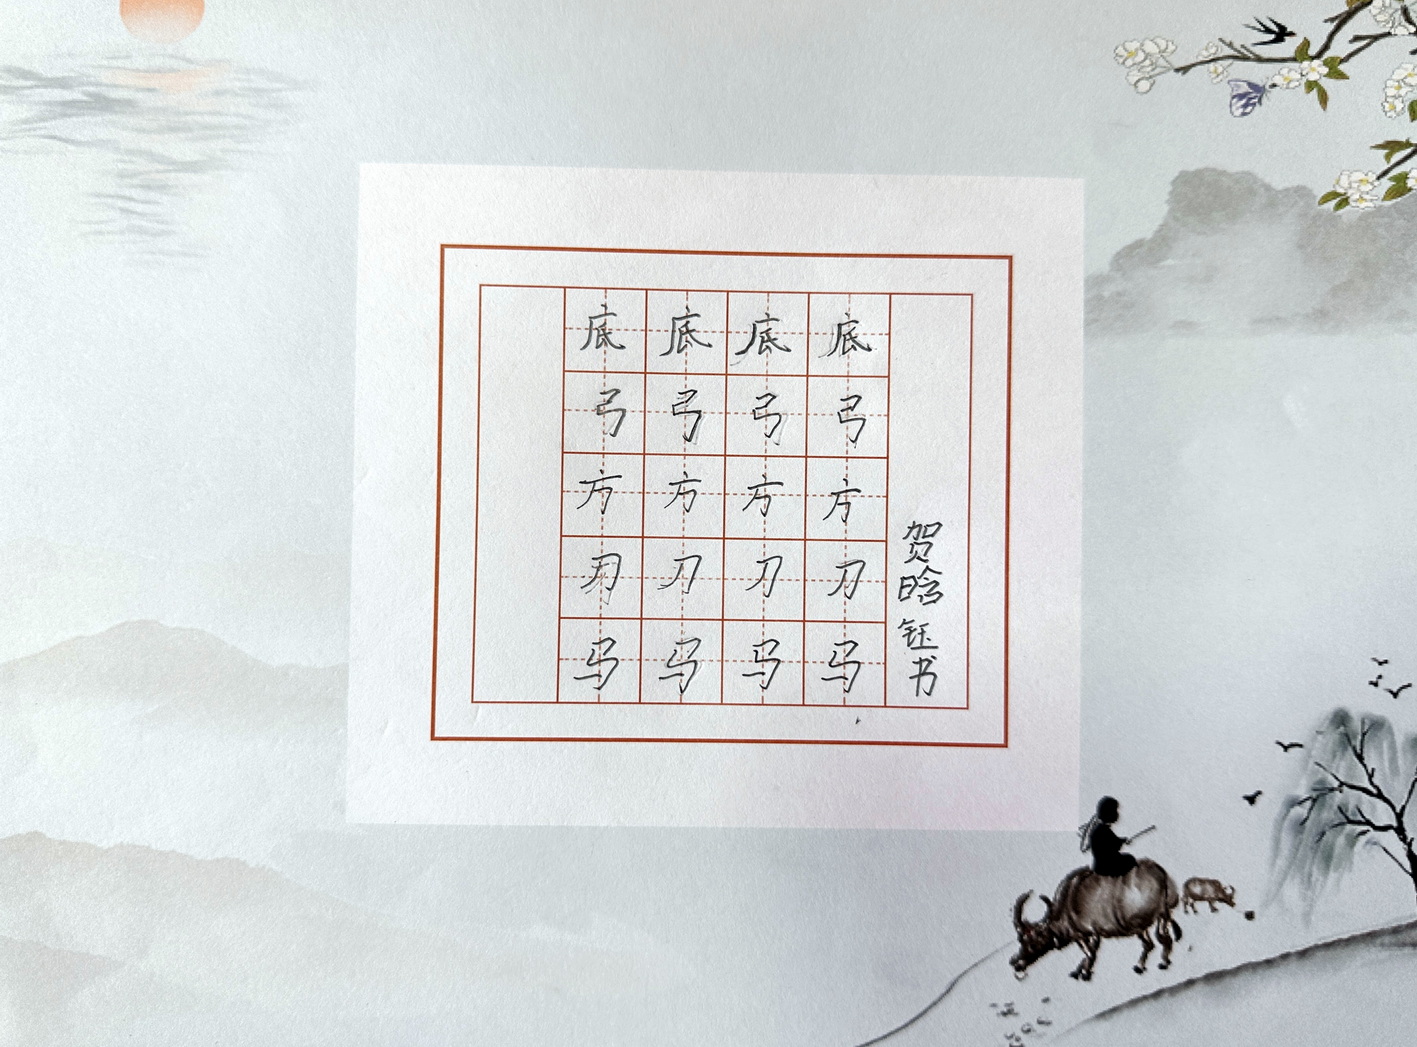 底 底 底 底
弓 弓 弓 弓
方 方 方 方
刀 刀 刀 刀
马 马 马 马
贺晗钰书